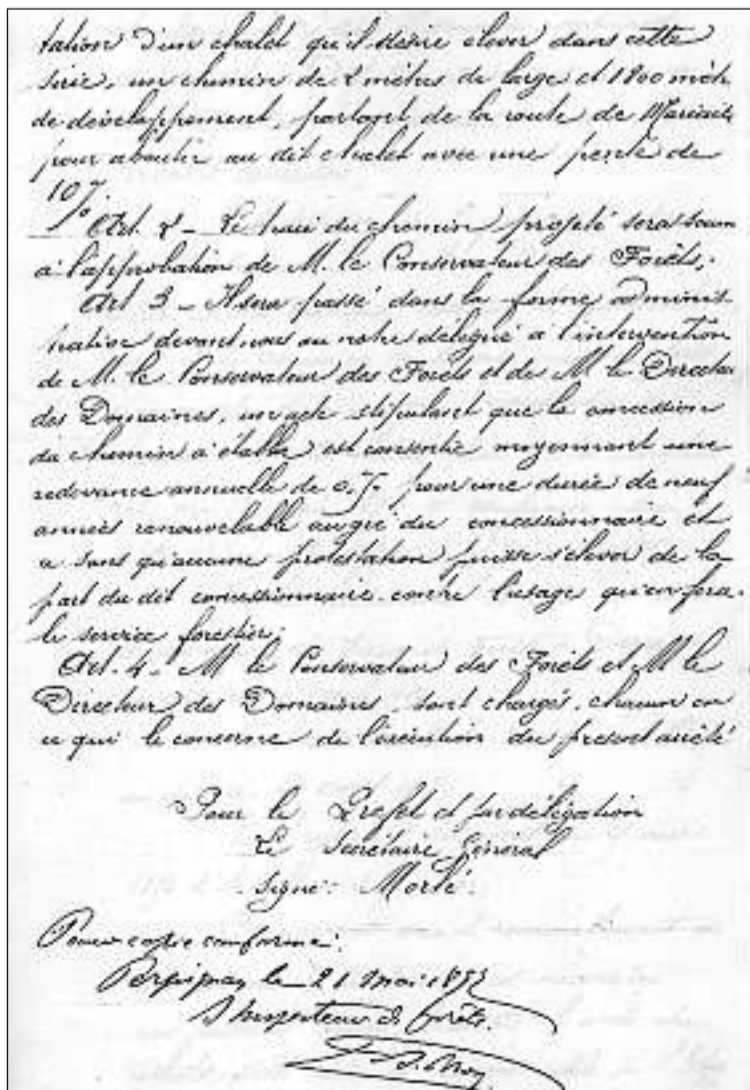 tation d'un chalet qu'il désire élever dans cette
série, un chemin de 2 mètres de large et 1800 mèt
de développement, partant de la route de
pour aboutir au dit chalet avec une pente de
10%
Art. 2 - Le tracé du chemin projeté sera soum
à l'approbation de M. le Conservateur des Forêts.
Art 3 - Il sera passé dans la forme adminis-
trative devant nous ou notre délégué à l'intervention
de M. le Conservateur des Forêts et de M le Directeur
des Domaines, un acte stipulant que la concession
du chemin à établir est consentie moyennant une
redevance annuelle de pour une durée de neuf
années renouvelable au gré du concessionnaire et
a sans qu'aucune protestation puisse s'élever de la
part du dit concessionnaire contre l'usage qu'en fera
le service forestier;
Art. 4 - M le Conservateur des Forêts et M le
Directeur des Domaines sont chargés, chacun en
ce qui le concerne de l'exécution du présent arrêté
Pour le Préfet et par délégation
Le Secrétaire Général
signé: Morlé.
Pour copie conforme:
Perpignan, le 21 Mai
L'Inspecteur d. Forêts.